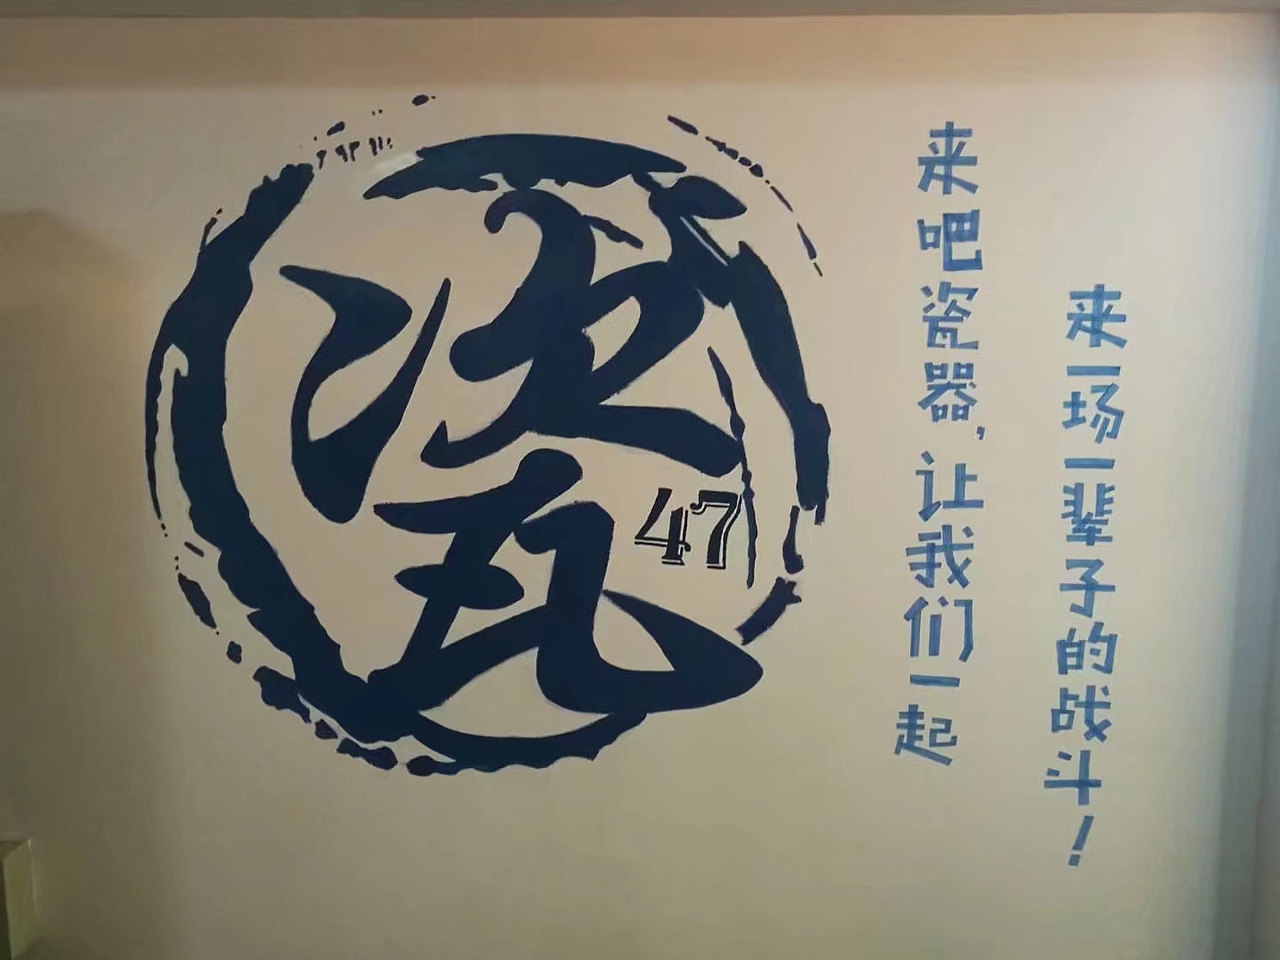 瓷
47
来吧瓷器,让我们一起
来一场一辈子的战斗!